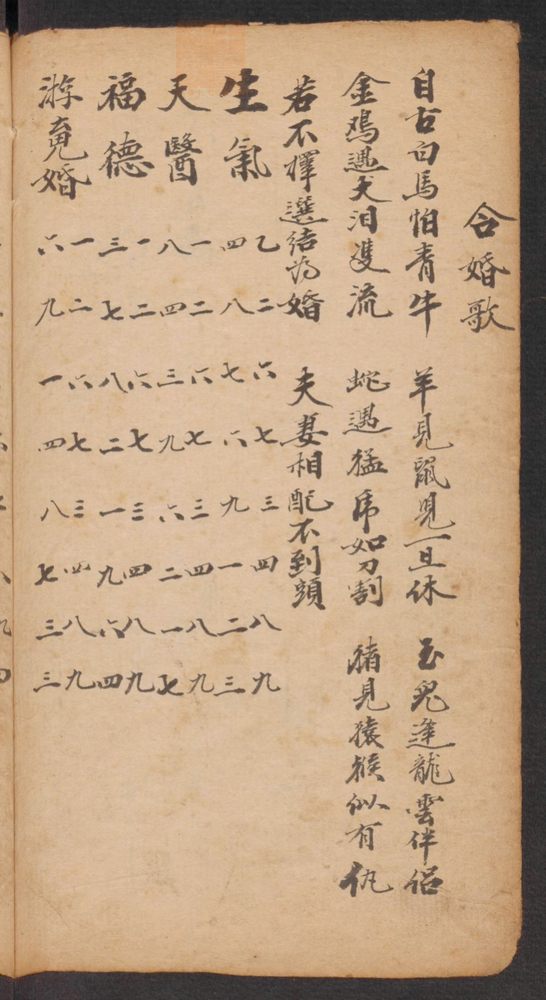 合婚歌
自古白馬怕青牛 羊見鼠見一旦休 玉兎逢龍雲伴侶
金鳮遇犬泪雙流 蛇遇猛虎如刀割 猪見猿猴似有仇
若不擇選結为婚 夫妻相配不到頭
生氣 乙二六七三四八九
四八七六九一二三
天醫 一二六七三四八九
八四三九六二一七
福德 一二六七三四八九
三七八二一九六四
游䰟婚 一二六七三四八九
六九一四八七三三